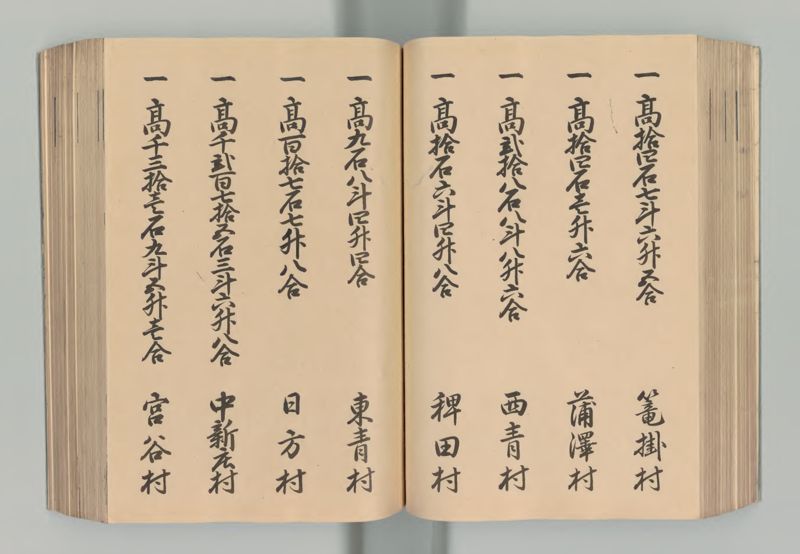 一 髙拾四石七斗六升五合 篭掛村
一 髙拾四石壱升六合 蒲澤村
一 髙弐拾八石八斗八升六合 西青村
一 髙拾石六斗四升八合 稗田村
一 髙九石八斗四升四合 東青村
一 髙百拾七石七升八合 日方村
一 髙千弐百七拾五石三斗六升八合 中新庄村
一 髙千三拾壱石九斗五升壱合 宮谷村